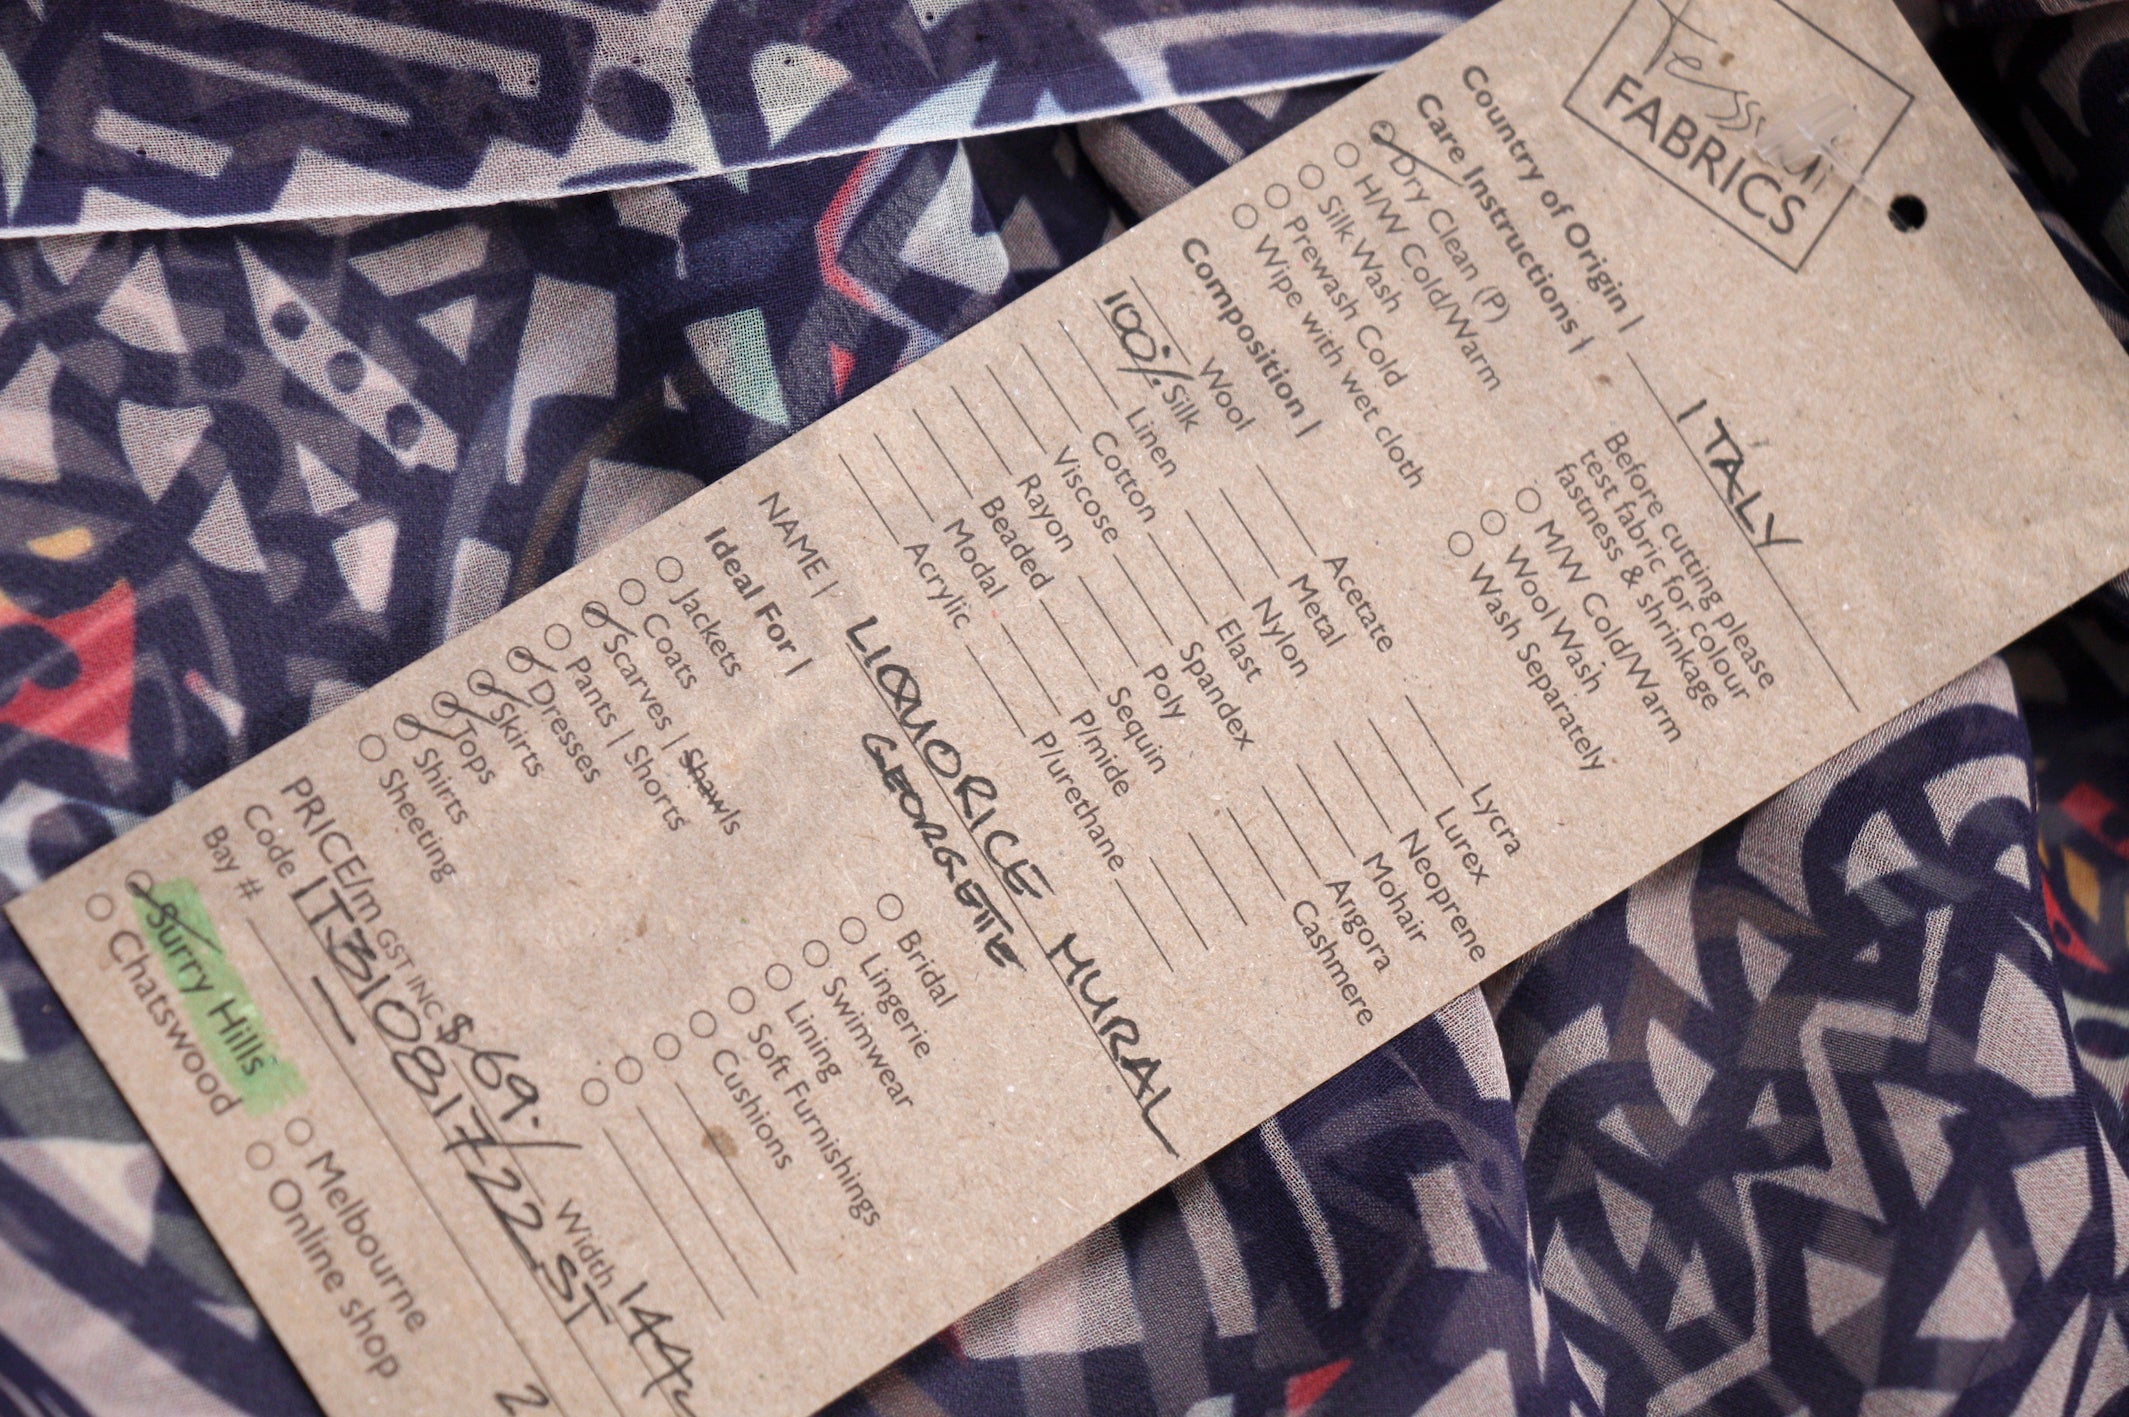 FABRICS
Country of Origin | ITALY
Care Instructions |
Dry Clean (P)
H/W Cold/Warm
Silk Wash
Prewash Cold
Wipe with wet cloth
Before cutting please
test fabric for colour
fastness & shrinkage
M/W Cold/Warm
Wool Wash
Wash Separately
Composition |
Wool
100% Silk
Linen
Cotton
Viscose
Rayon
Beaded
Modal
Acrylic
Acetate
Metal
Nylon
Elast
Spandex
Poly
Sequin
P/mide
P/urethane
Lycra
Lurex
Neoprene
Mohair
Angora
Cashmere
NAME | LIQUORICE MURAL
GEORGETTE
Ideal For |
Jackets
Coats
Scarves | Shawls
Pants | Shorts
Dresses
Skirts
Tops
Shirts
Sheeting
Bridal
Lingerie
Swimwear
Lining
Soft Furnishings
Cushions
PRICE/m GST INC $69./ Width 144
Code IT31081722ST
Bay # —
Surry Hills
Chatswood
Melbourne
Online shop